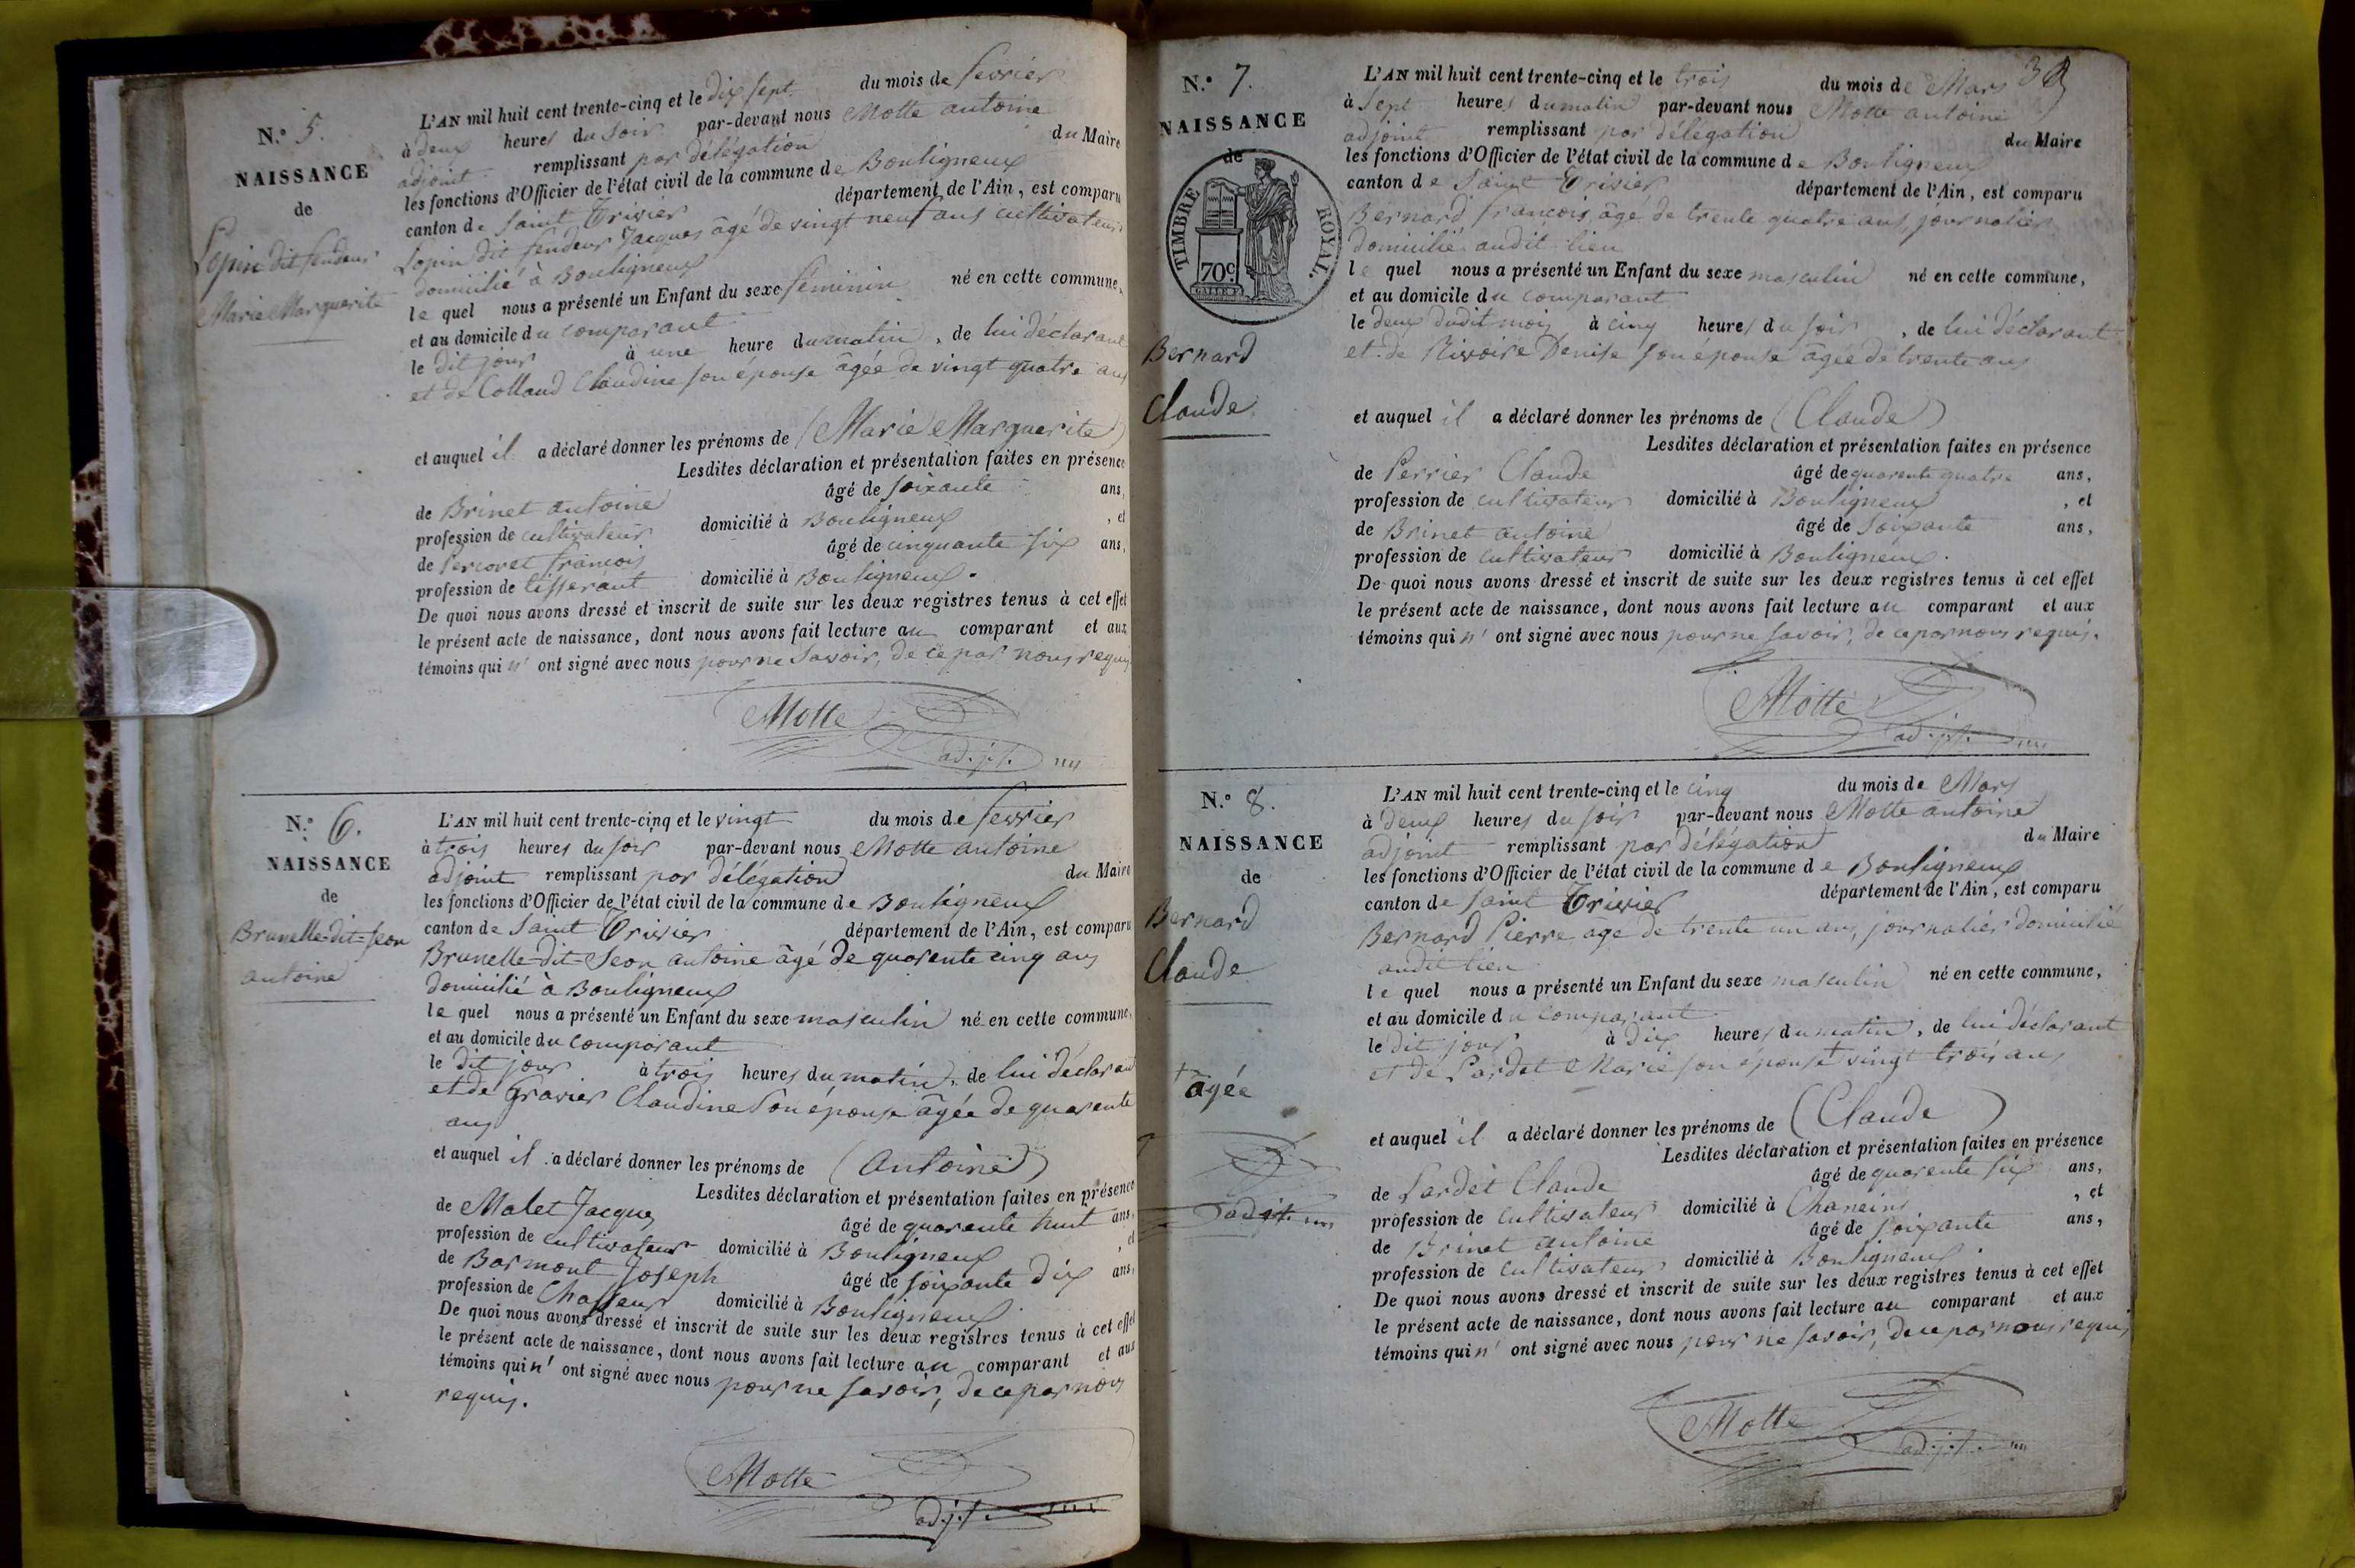 N.º 5.
NAISSANCE
de
Lopin dit fendeur
Marie Marguerite
L'AN mil huit cent trente-cinq et le dix sept du mois de fevrier
à deux heures du soir par-devant nous Motte antoine
adjoint remplissant par délégation du Maire
les fonctions d'Officier de l'état civil de la commune de Bouligneux
canton de Saint Trivier département de l'Ain, est comparu
Lopin dit fendeur Jacques âgé de vingt neuf ans cultivateur
domicilié à Bouligneux
le quel nous a présenté un Enfant du sexe féminin né en cette commune,
et au domicile du comparant
le dit jour à une heure du matin, de lui déclarant
et de Colland Claudine son épouse âgée de vingt quatre ans
et auquel il a déclaré donner les prénoms de (Marie Marguerite)
Lesdites déclaration et présentation faites en présence
de Brinet antoine âgé de soixante ans,
profession de cultivateur domicilié à Bouligneux, et
de Percoret francois âgé de cinquante six ans,
profession de tisserant domicilié à Bouligneux.
De quoi nous avons dressé et inscrit de suite sur les deux registres tenus à cet effet
le présent acte de naissance, dont nous avons fait lecture au comparant et aux
témoins qui n' ont signé avec nous pour ne savoir, de ce par nous requis
Motte
adj.t.
N.º 6.
NAISSANCE
de
Brunelle-dit-Jeon
antoine
L'AN mil huit cent trente-cinq et le vingt du mois de fevrier
à trois heures du soir par-devant nous Motte antoine
adjoint remplissant par délégation du Maire
les fonctions d'Officier de l'état civil de la commune de Bouligneux
canton de Saint Trivier département de l'Ain, est comparu
Brunelle-dit-Jeon antoine âgé de quarente cinq ans
domicilié à Bouligneux
le quel nous a présenté un Enfant du sexe masculin né en cette commune,
et au domicile du comparant
le dit jour à trois heures du matin, de lui déclarant
et de Gravier Claudine son épouse âgée de quarente
ans
et auquel il a déclaré donner les prénoms de (Antoine)
Lesdites déclaration et présentation faites en présence
de Malet Jacques âgé de quarente huit ans,
profession de cultivateur domicilié à Bouligneux, et
de Barmont Joseph âgé de soixante dix ans,
profession de Chasseur domicilié à Bouligneux.
De quoi nous avons dressé et inscrit de suite sur les deux registres tenus à cet effet
le présent acte de naissance, dont nous avons fait lecture au comparant et aux
témoins qui n' ont signé avec nous pour ne savoir, de ce par nous
requis.
Motte
adj.t.
N.º 7.
NAISSANCE
de
TIMBRE ROYAL.
70c
Bernard
Claude
L'AN mil huit cent trente-cinq et le trois du mois de Mars
à sept heures du matin par-devant nous Motte antoine
adjoint remplissant par délégation du Maire
les fonctions d'Officier de l'état civil de la commune de Bouligneux
canton de Saint Trivier département de l'Ain, est comparu
Bernard francois, âgé de trente quatre ans, journalier
domicilié audit lieu
le quel nous a présenté un Enfant du sexe masculin né en cette commune,
et au domicile du comparant
le deux dudit mois à cinq heures du soir, de lui déclarant
et de Rivoire Denise son épouse âgée de trente ans
et auquel il a déclaré donner les prénoms de (Claude)
Lesdites déclaration et présentation faites en présence
de Perrier Claude âgé de quarente quatre ans,
profession de cultivateur domicilié à Bouligneux, et
de Brinet antoine âgé de soixante ans,
profession de cultivateur domicilié à Bouligneux.
De quoi nous avons dressé et inscrit de suite sur les deux registres tenus à cet effet
le présent acte de naissance, dont nous avons fait lecture au comparant et aux
témoins qui n' ont signé avec nous pour ne savoir, de ce par nous requis.
Motte
adj.t.
N.º 8.
NAISSANCE
de
Bernard
Claude
+ âgée
adjt.
L'AN mil huit cent trente-cinq et le cinq du mois de Mars
à deux heures du soir par-devant nous Motte antoine
adjoint remplissant par délégation du Maire
les fonctions d'Officier de l'état civil de la commune de Bouligneux
canton de Saint Trivier département de l'Ain, est comparu
Bernard Pierre âgé de trente un ans, journalier domicilié
audit lieu
le quel nous a présenté un Enfant du sexe masculin né en cette commune,
et au domicile du comparant
le dit jour à dix heures du matin, de lui déclarant
et de Lardet Marie son épouse + vingt trois ans
et auquel il a déclaré donner les prénoms de (Claude)
Lesdites déclaration et présentation faites en présence
de Lardet Claude âgé de quarente six ans,
profession de cultivateur domicilié à Chaneins, et
de Brinet antoine âgé de soixante ans,
profession de cultivateur domicilié à Bouligneux.
De quoi nous avons dressé et inscrit de suite sur les deux registres tenus à cet effet
le présent acte de naissance, dont nous avons fait lecture au comparant et aux
témoins qui n' ont signé avec nous pour ne savoir, de ce par nous requis
Motte
adj.t.